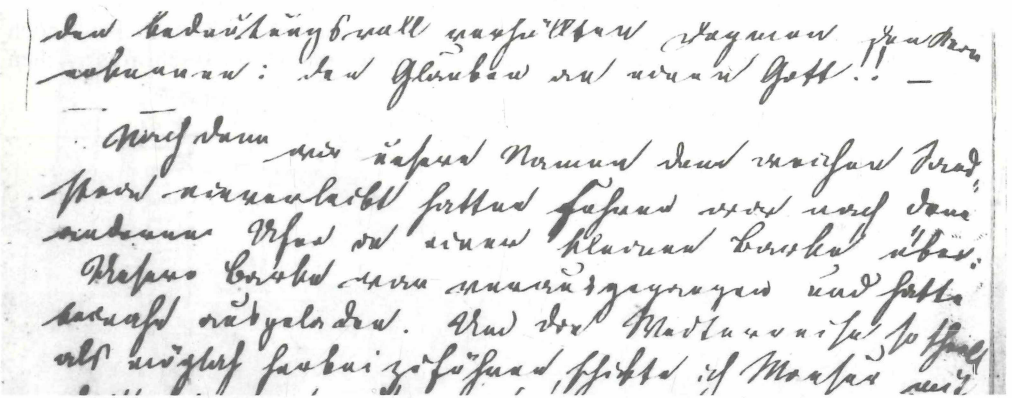 den bedeutungsvoll verhüllten Dogmen den Kern
erkennen: den Glauben an einen Gott!! –
Nachdem wir unsere Namen dem weichen Sand-
stein einverleibt hatten fuhren wir nach dem
anderen Ufer in einer kleinen Barke über.
Unsere Barke war vorausgegangen und hatte
beinahe ausgeladen. Um die Weiterreise so schnell
als möglich herbeizuführen, schickte ich Mansur mit